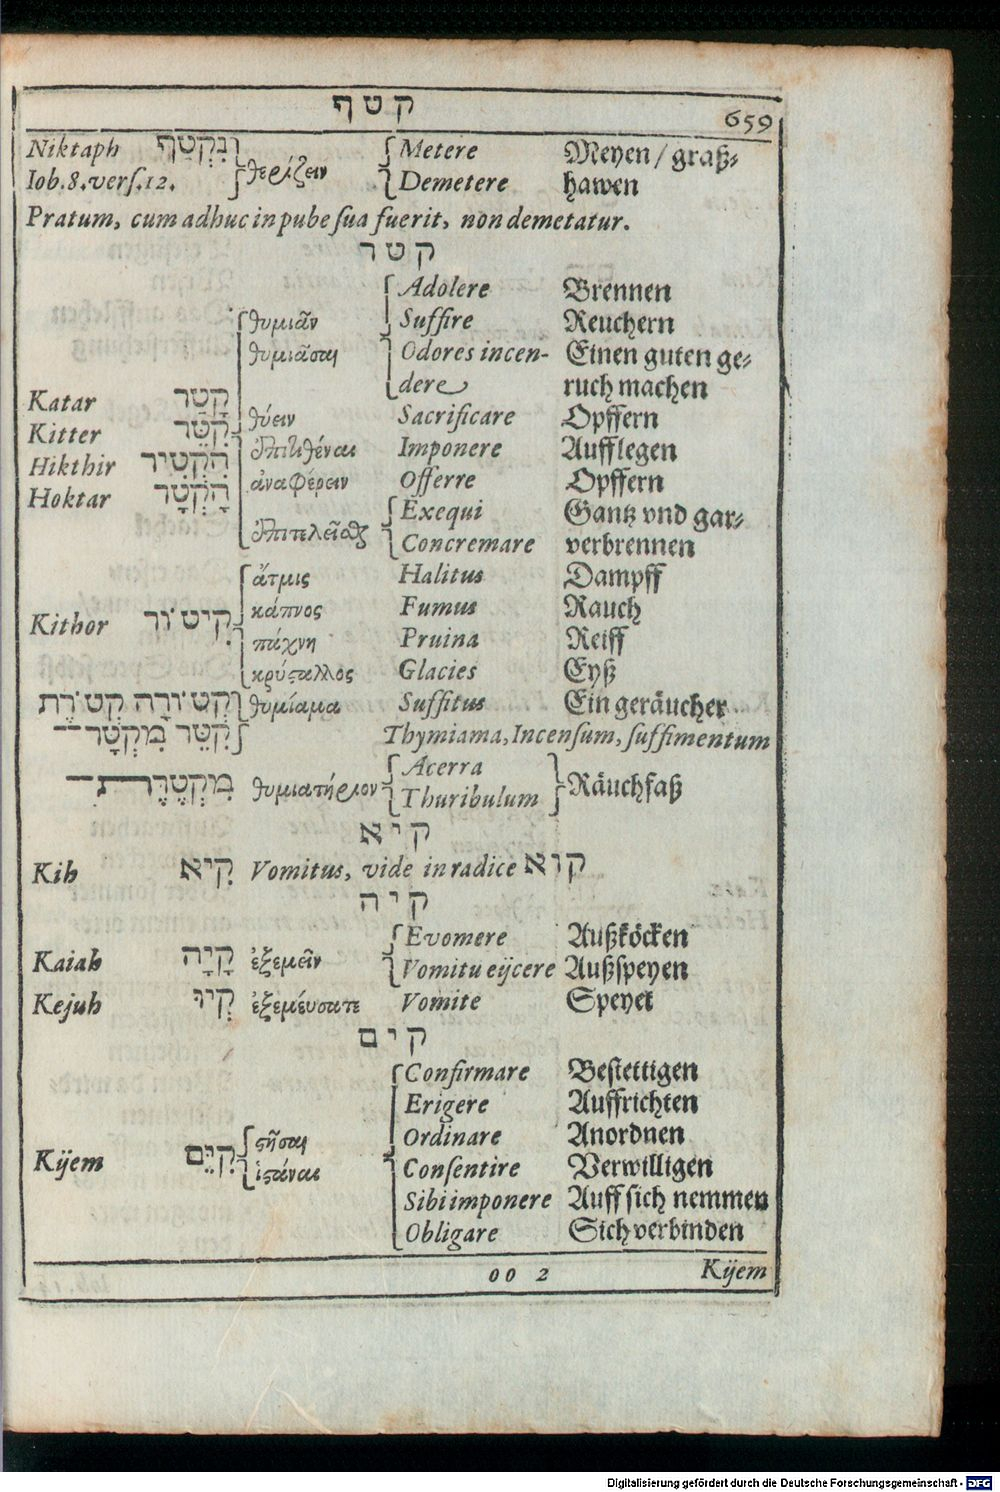 קטף
659
Niktaph נִקְטַף θερίζειν Metere Meyen / graß-
Iob.8.vers.12. Demetere hawen
Pratum, cum adhuc in pube sua fuerit, non demetatur.
קטר
Adolere Brennen
θυμιᾶν Suffire Reuchern
θυμιᾶσαι Odores incen- Einen guten ge-
dere ruch machen
Katar קָטַר θύειν Sacrificare Opffern
Kitter קִטֵּר ἐπιτιθέναι Imponere Aufflegen
Hikthir הִקְטִיר ἀναφέρειν Offerre Opffern
Hoktar הָקְטָר Exequi Gantz vnd gar-
ἐπιτελεῖσθαι Concremare verbrennen
ἄτμις Halitus Dampff
Kithor קִיטוֹר κάπνος Fumus Rauch
πάχνη Pruina Reiff
κρύσταλλος Glacies Eyß
קְטוֹרָה קְטֹרֶת θυμίαμα Suffitus Ein geräucher
קִטֵּר מִקְטָר Thymiama, Incensum, suffimentum
מִקְטֶרֶת θυμιατήριον Acerra Räuchfaß
Thuribulum
קיא
Kih קִיא Vomitus, vide in radice קוא
קיה
Evomere Außköcken
Kaiah קָיָה ἐξεμεῖν Vomitu eijcere Außspeyen
Kejuh קְיוּ ἐξεμέσατε Vomite Speyet
קים
Confirmare Bestettigen
Erigere Auffrichten
στῆσαι Ordinare Anordnen
Kijem קִיֵּם ἱστάναι Consentire Verwilligen
Sibi imponere Auff sich nemmen
Obligare Sich verbinden
oo 2 Kijem
Digitalisierung gefördert durch die Deutsche Forschungsgemeinschaft - DFG